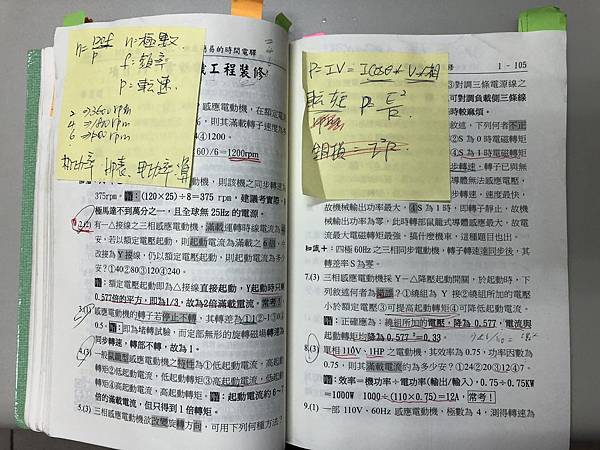 n=120f/p n=極數
f:頻率
p=転速
2 ⇒3600rpm
4 ⇒1800rpm
6 ⇒1200rpm
易的時間電驛
工程裝修
感應電動機,在額定電
則其滿載轉子速度為多
④1200。
60)/6=1200rpm
動機,則該機之同步轉速為
375rpm。:(120×25)÷8=375 rpm,建議考實際,
極馬達不到萬分之一,且全球無 25Hz 的電源。
2.(2) 有一△接線之三相感應電動機,滿載運轉時線電流為
安,若以額定電壓起動,則起動電流為滿載之6倍,
改接為 Y 接線,仍以額定電壓起動,則起動電流為多少
安?①40②80③120④240。
:額定電壓起動即為△接線直接起動,Y起動時只
0.577倍的平方,即為1/3,故為2倍滿載電流。常考!
3.(1) 感應電動機的轉子若停止不轉,其轉差為①1②
⑤。:即為堵轉試驗,而定部無形的旋轉磁場轉速為
同步轉速,轉部不轉,故為1。
4.(3) 一般鼠籠型感應電動機之特性為①低起動電流,高起動
轉矩②低起動電流,低起動轉矩③高起動電流,低起動
轉矩④高起動電流,高起動轉矩。:起動電流約6~7
倍的滿載電流,但只得到1倍轉矩。
5.(3) 三相感應電動機欲改變旋轉方向,可用下列何種方法?
1-105
P=IV=ICosθ*V*相
転矩 P=E²/R
銅損=I²R
③對調三條電源線之
可對調負載側三條線
時較麻煩。
敘述,下列何者不正
④S為1時電磁轉矩
步轉速,轉子已與無
導體無法感應電壓,
步轉速,速度最快,
故機械輸出功率最大。④S為1時,即轉子靜止,故機
械輸出功率為零,此時轉部鼠籠式導體感應最大,故電
流最大電磁轉矩最強。搞什麼機車,這種題目也出。
知識+:四極60Hz之三相同步電動機,轉子轉速達同步後,其
轉差率S為零。
7.(3) 三相感應電動機採 Y-△降壓起動開關,於起動時,下
列敘述何者為錯誤?①繞組為 Y 接②繞組所加的電壓
小於額定電壓③可提高起動轉矩④可降低起動電流。
:正確應為:繞組所加的電壓,降為 0.577,電流與
起動轉矩均降為0.577²=0.33。
8.(3) 單相110V、1HP之電動機,其效率為0.75,功率因數為
0.75,則其滿載電流約為多少安?①24②20③12④7。
:效率=機功率÷電功率(輸出/輸入),0.75÷0.75KW
=1000W 1000÷(110×0.75)=12A,常考!
9.(1) 一部 110V、60Hz 感應電動機,極數為4,測得轉速為